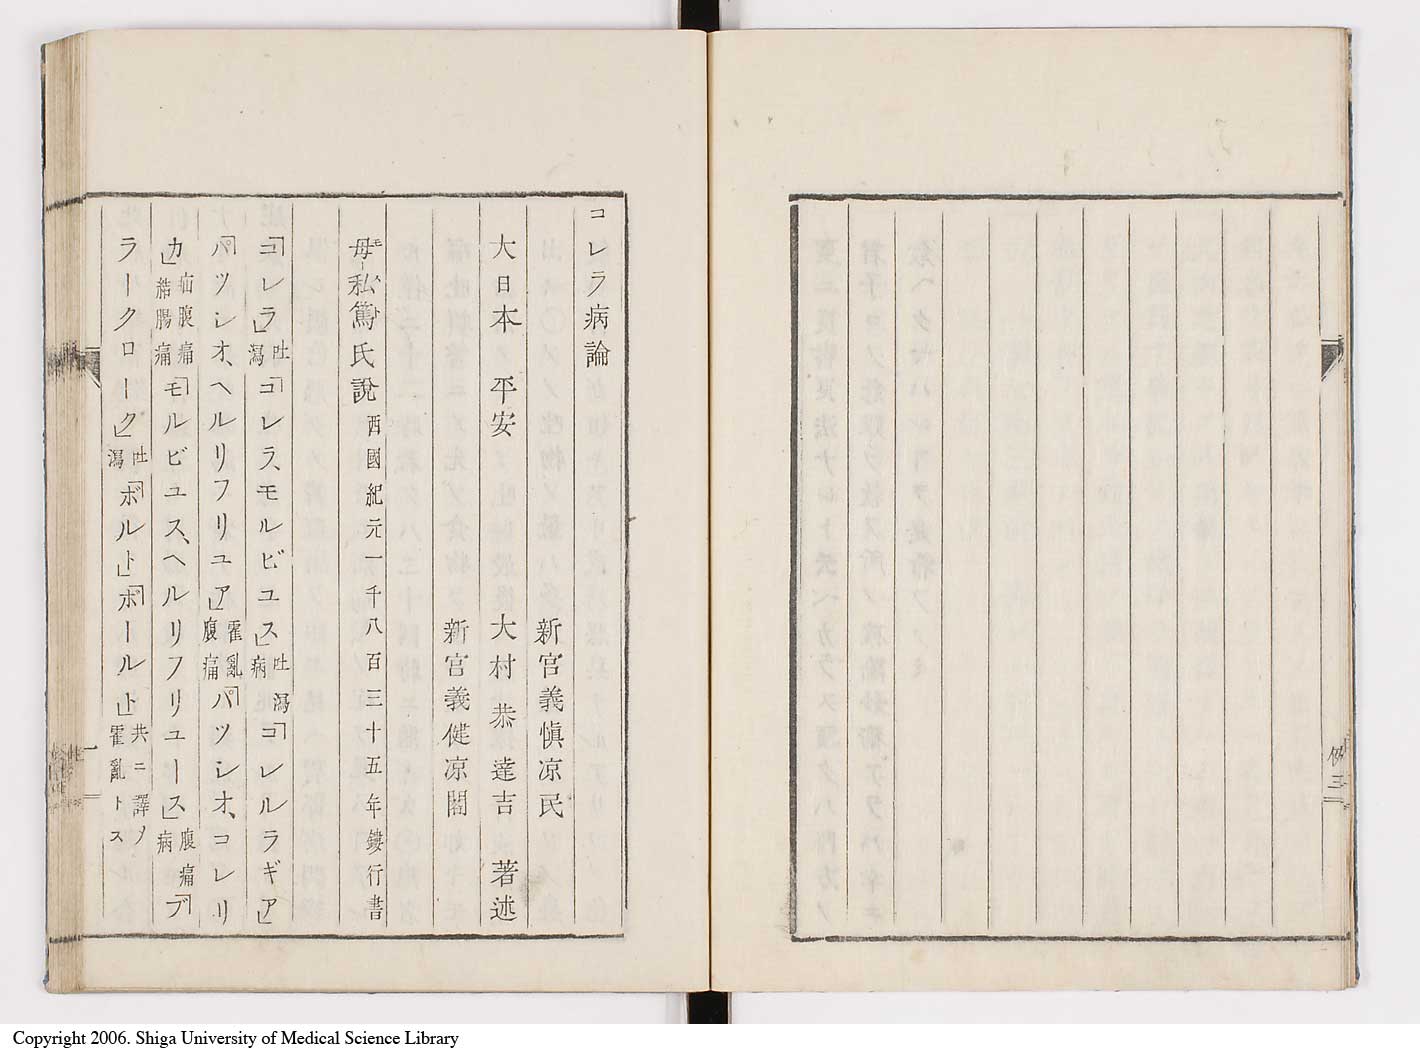 例三
コレラ病論
新宮義慎凉民
大日本 平安 大村恭達吉 著述
新宮義健凉閣
母私篤氏說 西國紀元一千八百三十五年鏤行書
「コレラ」吐瀉「コレラ、モルビユス」吐瀉病「コレルラギア」
「パツシオ、ヘルリフリユア」霍亂腹痛「パツシオ、コレリ
カ」疝腹痛 結腸痛「モルビユス、ヘルリフリユース」腹痛病「ブ
ラークローク」吐瀉「ボルト」「ボールト」共ニ譯ノ霍亂トス
一
Copyright 2006. Shiga University of Medical Science Library